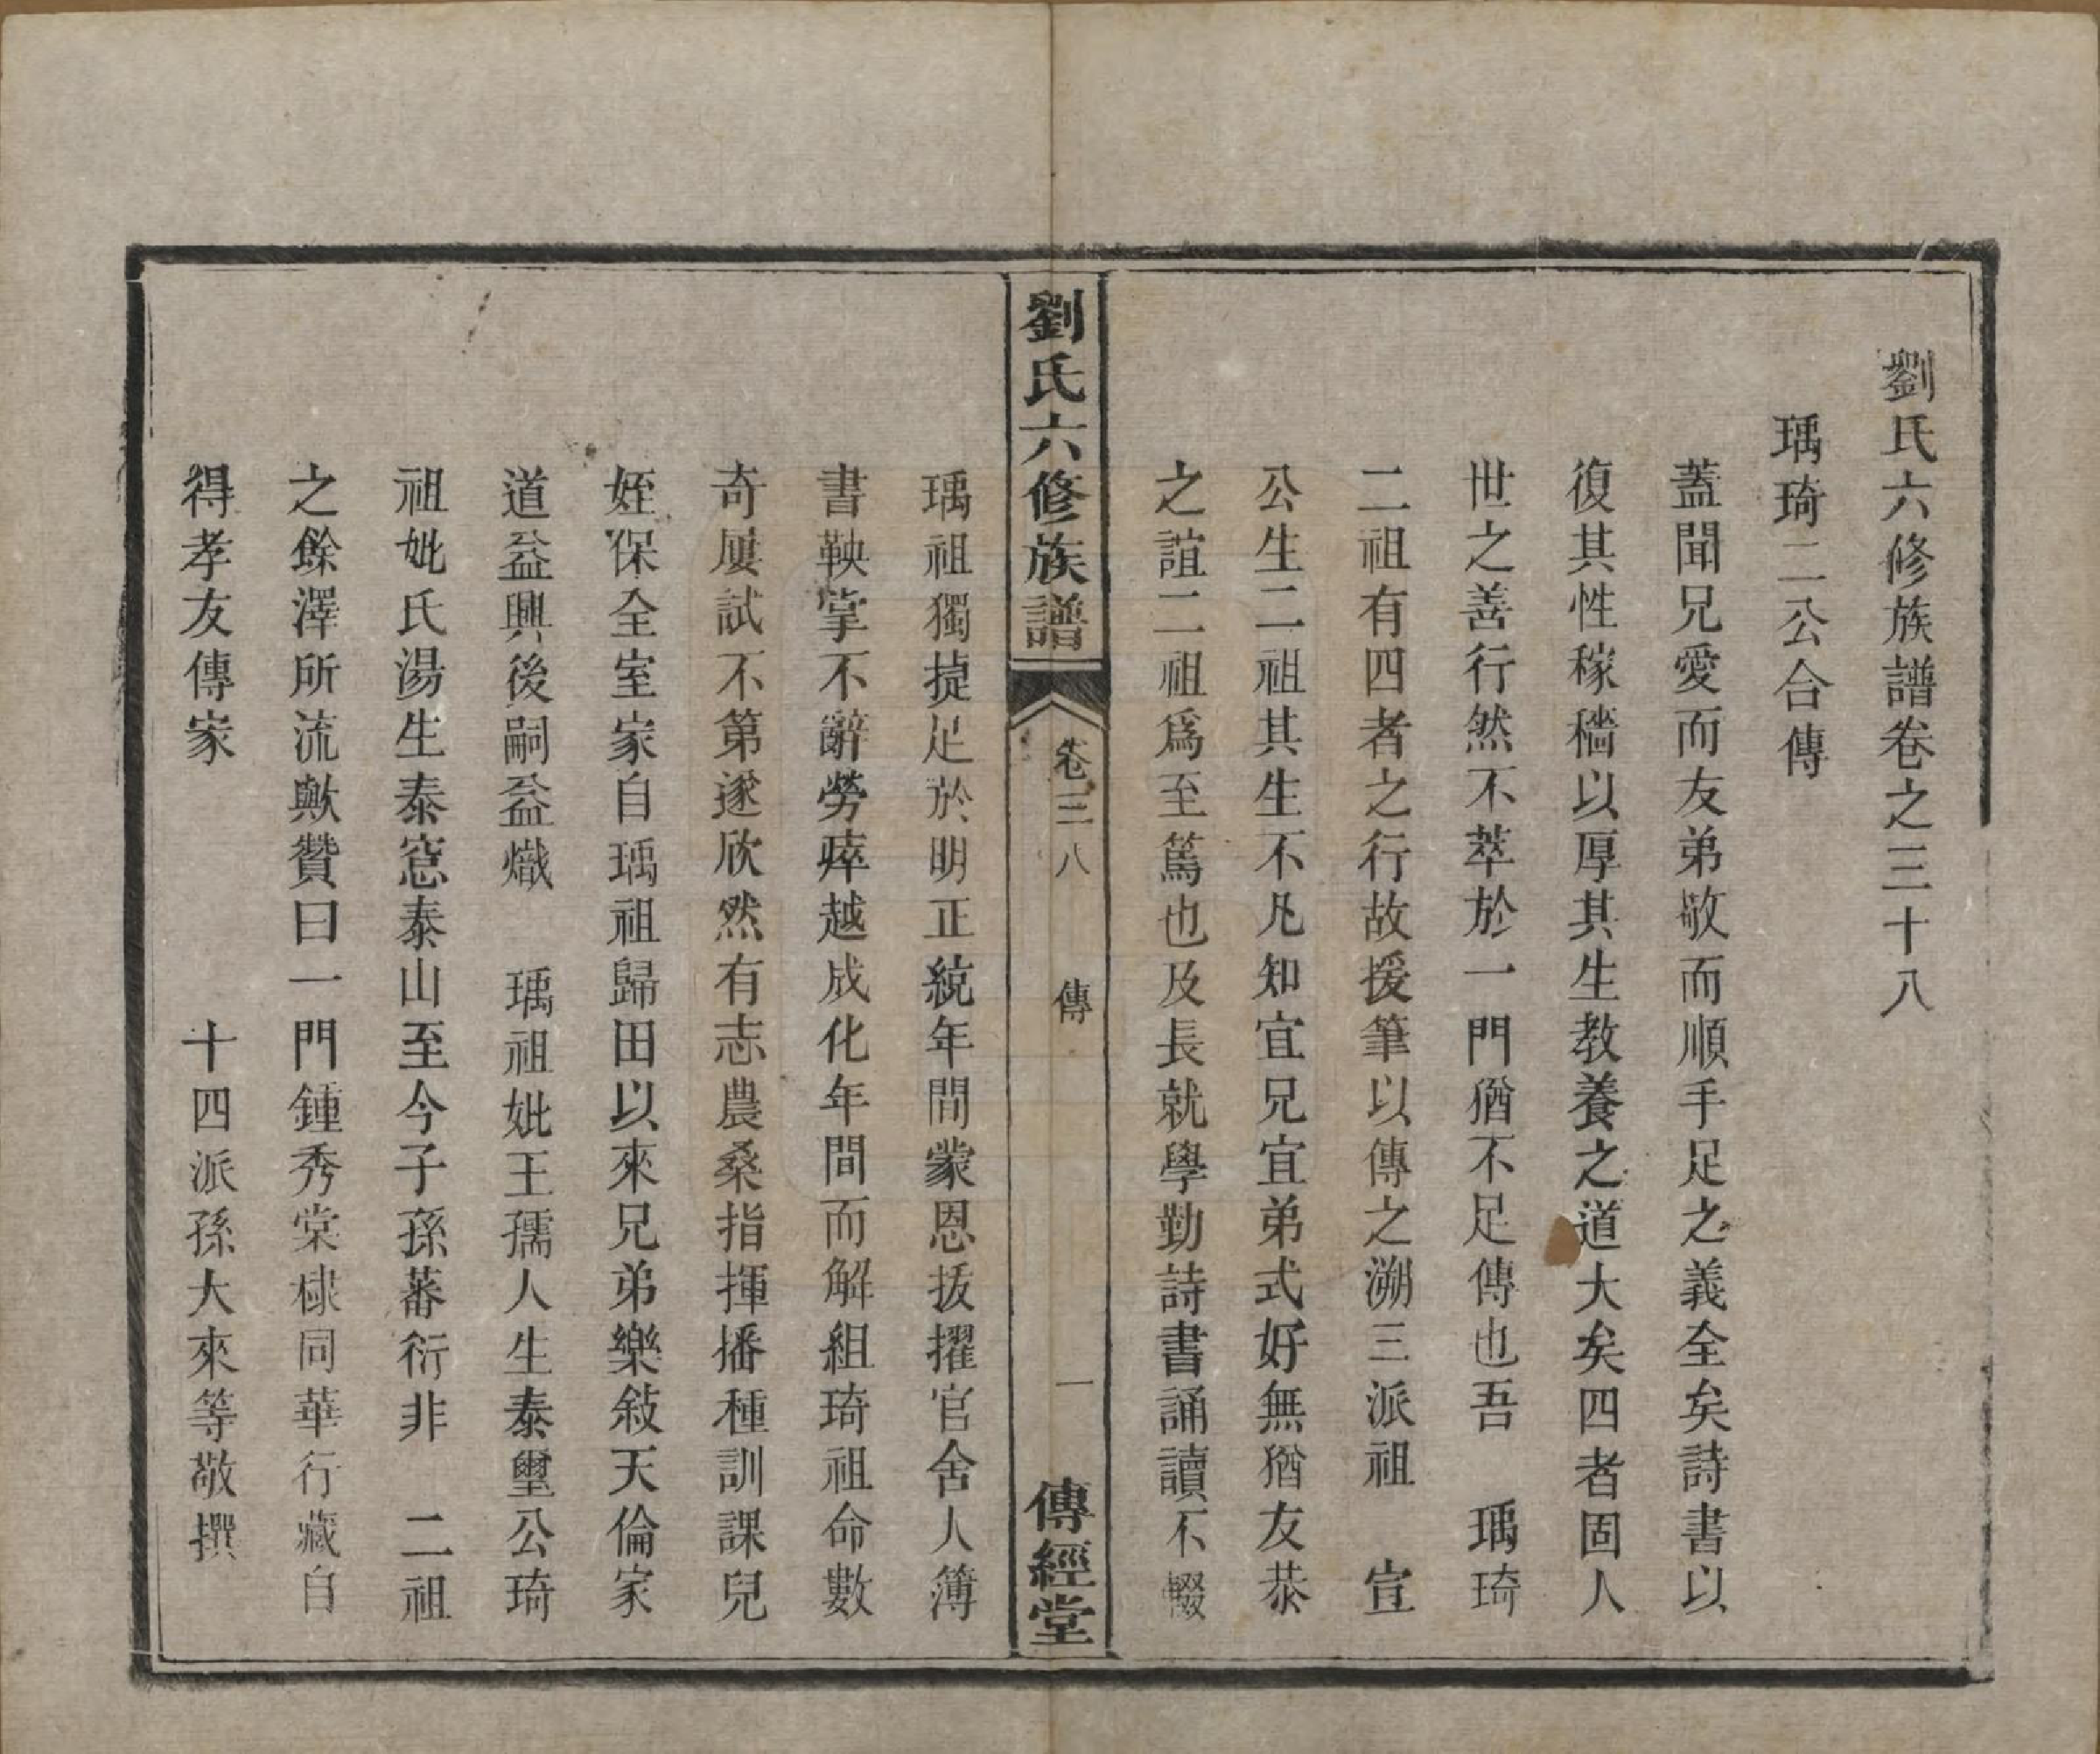 劉氏六修族譜卷之三十八
瑀琦二公合傳
蓋聞兄愛而友弟敬而順手足之義全矣詩書以
復其性稼穡以厚其生教養之道大矣四者固人
世之善行然不萃於一門猶不足傳也吾 瑀琦
二祖有四者之行故援筆以傳之溯三派祖 宣
公生二祖其生不凡知宜兄宜弟式好無猶友恭
之誼二祖爲至篤也及長就學勤詩書誦讀不輟
劉氏六修族譜
卷三八
傳
一
傳經堂
瑀祖獨捷足於明正統年間蒙恩拔擢官舍人簿
書鞅掌不辭勞瘁越成化年間而解組琦祖命數
奇屢試不第遂欣然有志農桑指揮播種訓課兒
姪保全室家自瑀祖歸田以來兄弟樂敍天倫家
道益興後嗣益熾 瑀祖妣王孺人生泰璽公琦
祖妣氏湯生泰窓泰山至今子孫蕃衍非 二祖
之餘澤所流歟贊曰一門鍾秀棠棣同華行藏自
得孝友傳家 十四派孫大來等敬撰